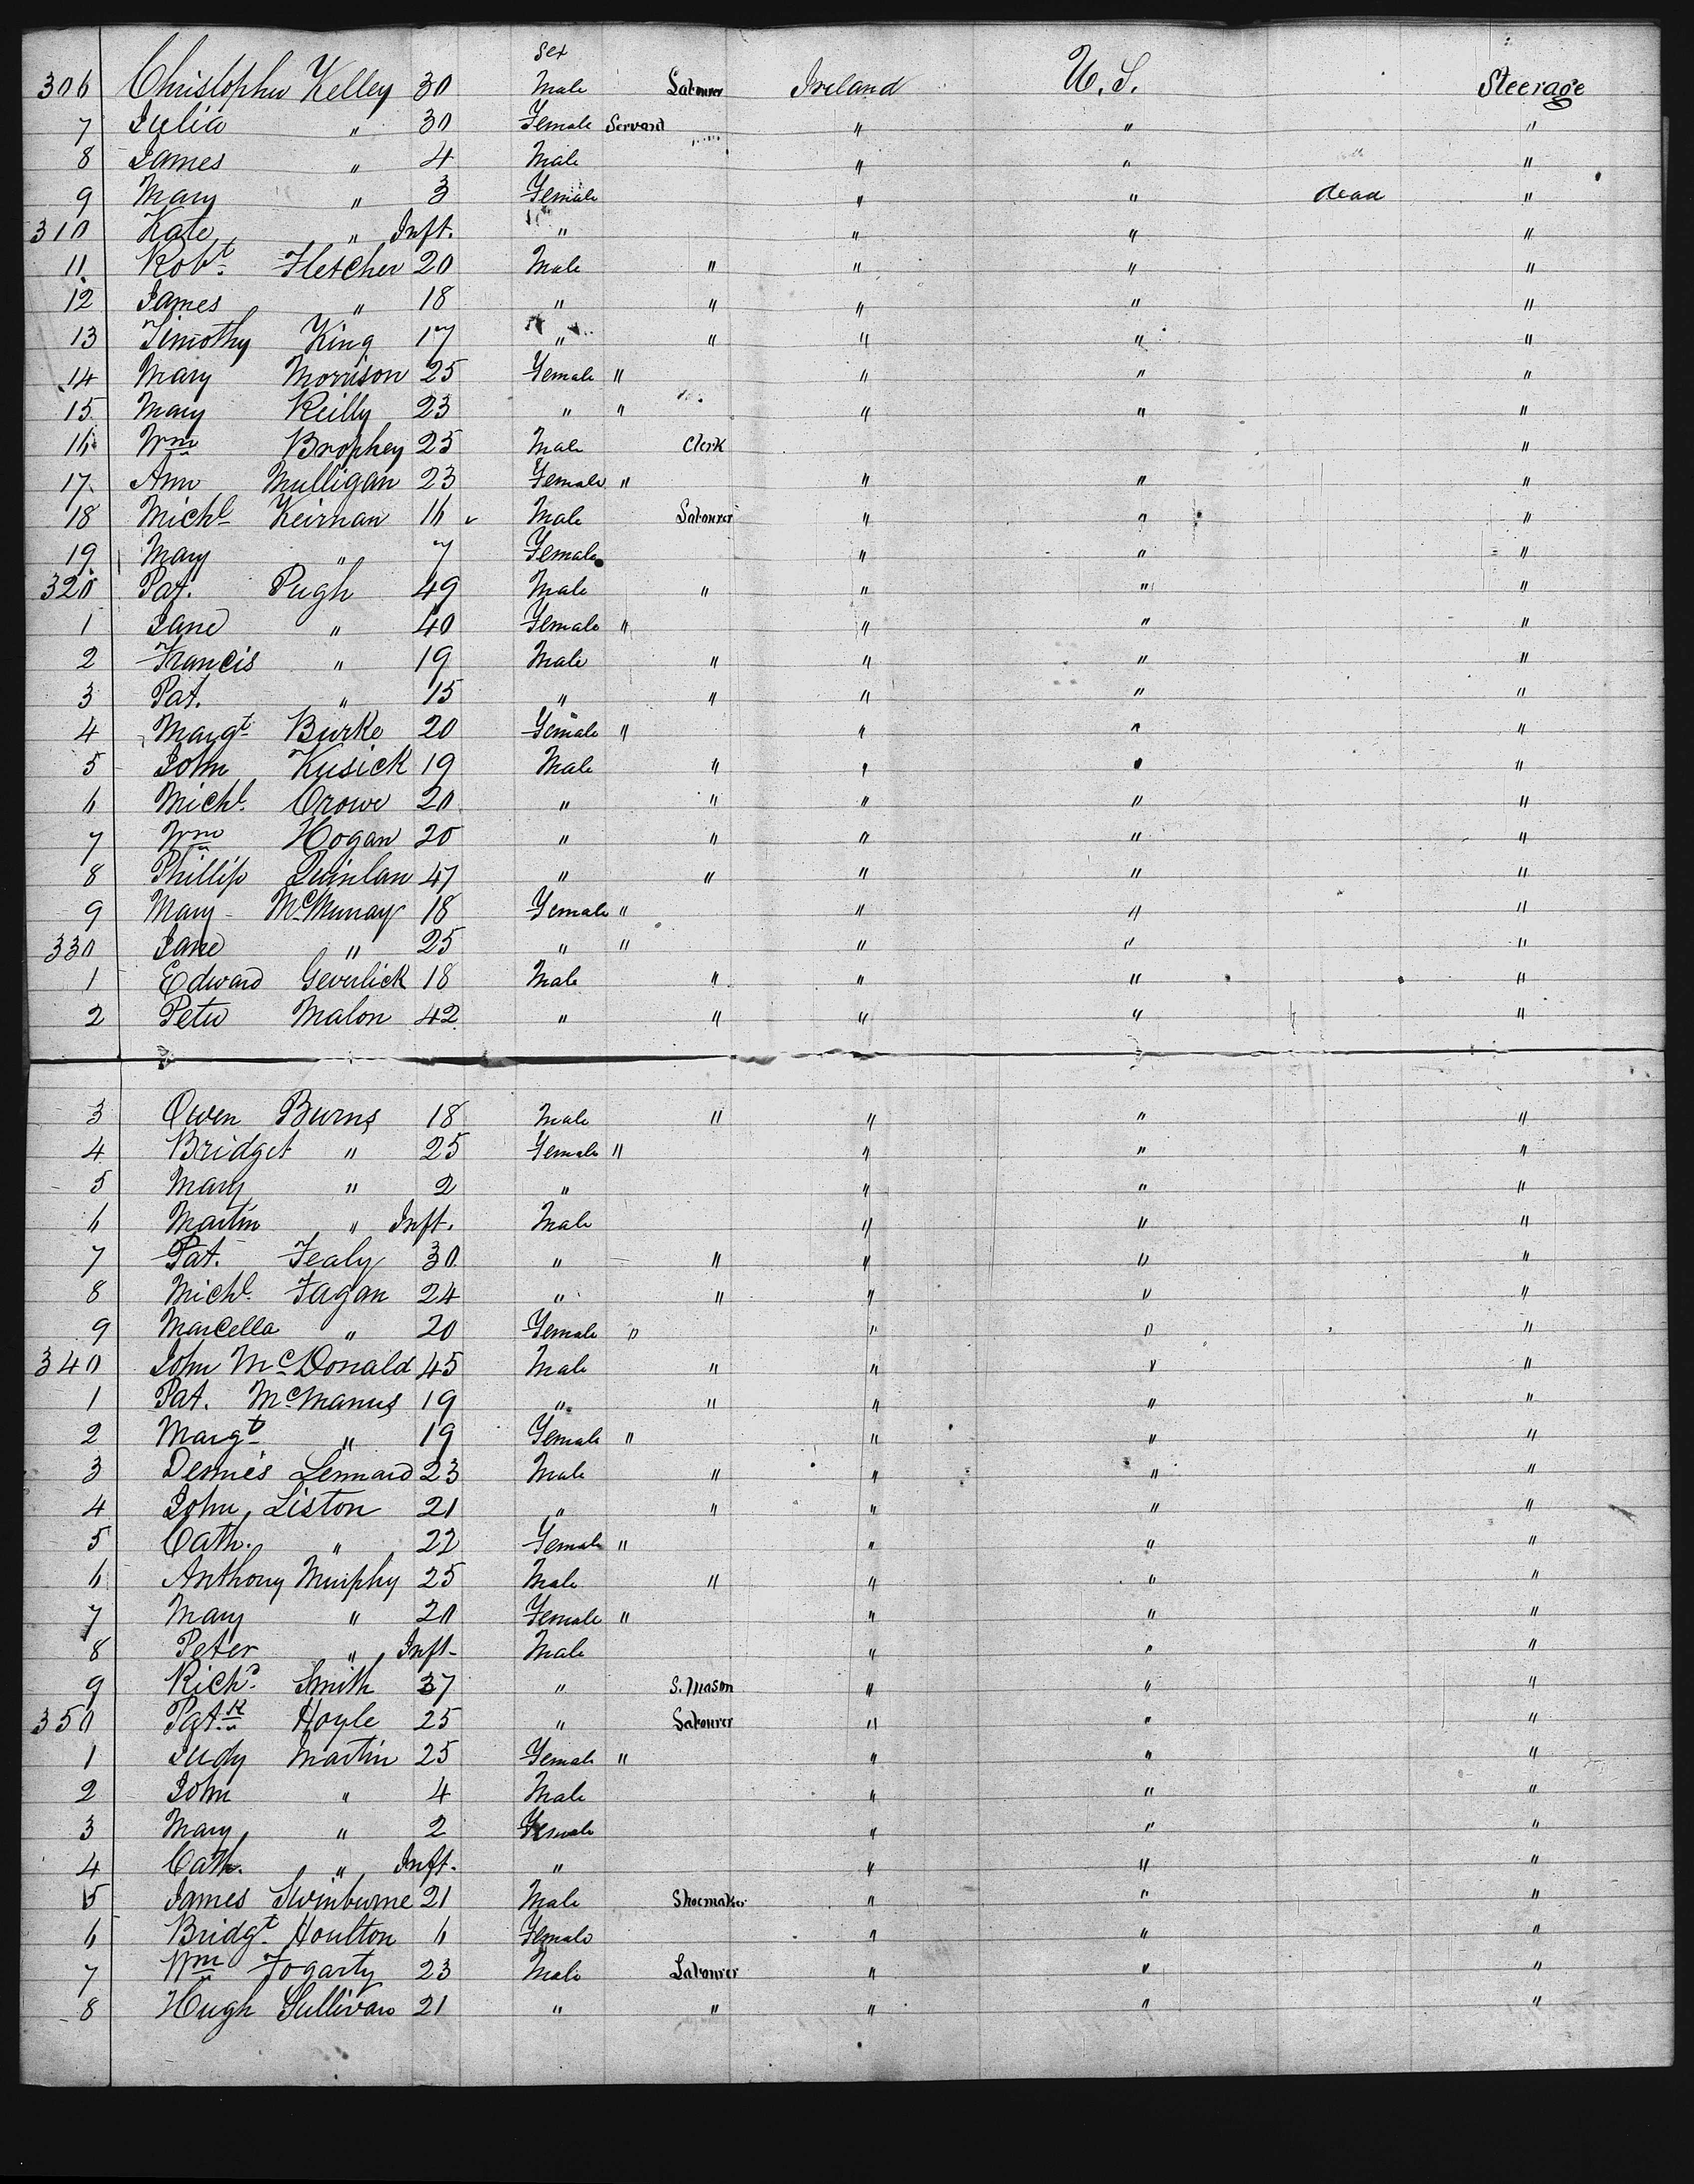 Sex
306 Christopher Kelley 30 Male Labourer Ireland U. S. Steerage
7 Julia " 30 Female Servant " " "
8 James " 4 Male " " "
9 Mary " 3 Female " " dead "
310 Kate " Inft. " " " "
11 Robt. Fletcher 20 Male " " " "
12 James " 18 " " " " "
13 Timothy King 17 " " " " "
14 Mary Morrison 25 Female " " " "
15 Mary Reilly 23 " " " " "
16 Wm Brophey 25 Male Clerk "
17 Ann Mulligan 23 Female " " " "
18 Michl Keirnan 16 Male Labourer " " "
19 Mary " 7 Female " " "
320 Pat. Pugh 49 Male " " " "
1 Jane " 40 Female " " " "
2 Francis " 19 Male " " " "
3 Pat. " 15 " " " " "
4 Margt Burke 20 Female " " " "
5 John Kusick 19 Male " " " "
6 Michl. Crowe 20 " " " " "
7 Wm Hogan 20 " " " " "
8 Phillip Quinlan 47 " " " " "
9 Mary McMurray 18 Female " " " "
330 Jane " 25 " " " " "
1 Edward 18 Male " " " "
2 Peter Malon 42 " " " " "
3 Owen Burns 18 Male " " " "
4 Bridget " 25 Female " " " "
5 Mary " 2 " " " "
6 Martin " Inft. Male " " "
7 Pat. Fealy 30 " " " " "
8 Michl. Fagan 24 " " " " "
9 Marcella " 20 Female " " " "
340 John McDonald 45 Male " " " "
1 Pat. McManus 19 " " " " "
2 Margt " 19 Female " " " "
3 Dennis Lennard 23 Male " " " "
4 John Liston 21 " " " " "
5 Cath. " 22 Female " " " "
6 Anthony Murphy 25 Male " " " "
7 Mary " 20 Female " " " "
8 Peter " Inft. Male " " "
9 Richd. Smith 37 " S. Mason " " "
350 Patk Hoyle 25 " Labourer " " "
1 Judy Martin 25 Female " " " "
2 John " 4 Male " " "
3 Mary " 2 Female " " "
4 Cath. " Inft. " " " "
5 James Swinburne 21 Male Shoemaker " " "
6 Bridgt. Houlton 6 Female " " "
7 Wm Fogarty 23 Male Labourer " " "
8 Hugh Sullivan 21 " " " " "